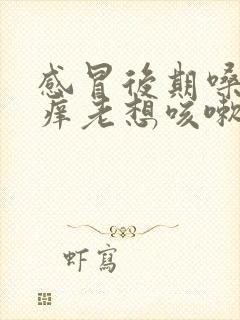 感冒後期嗓
痒老想咳嗽
虾寫